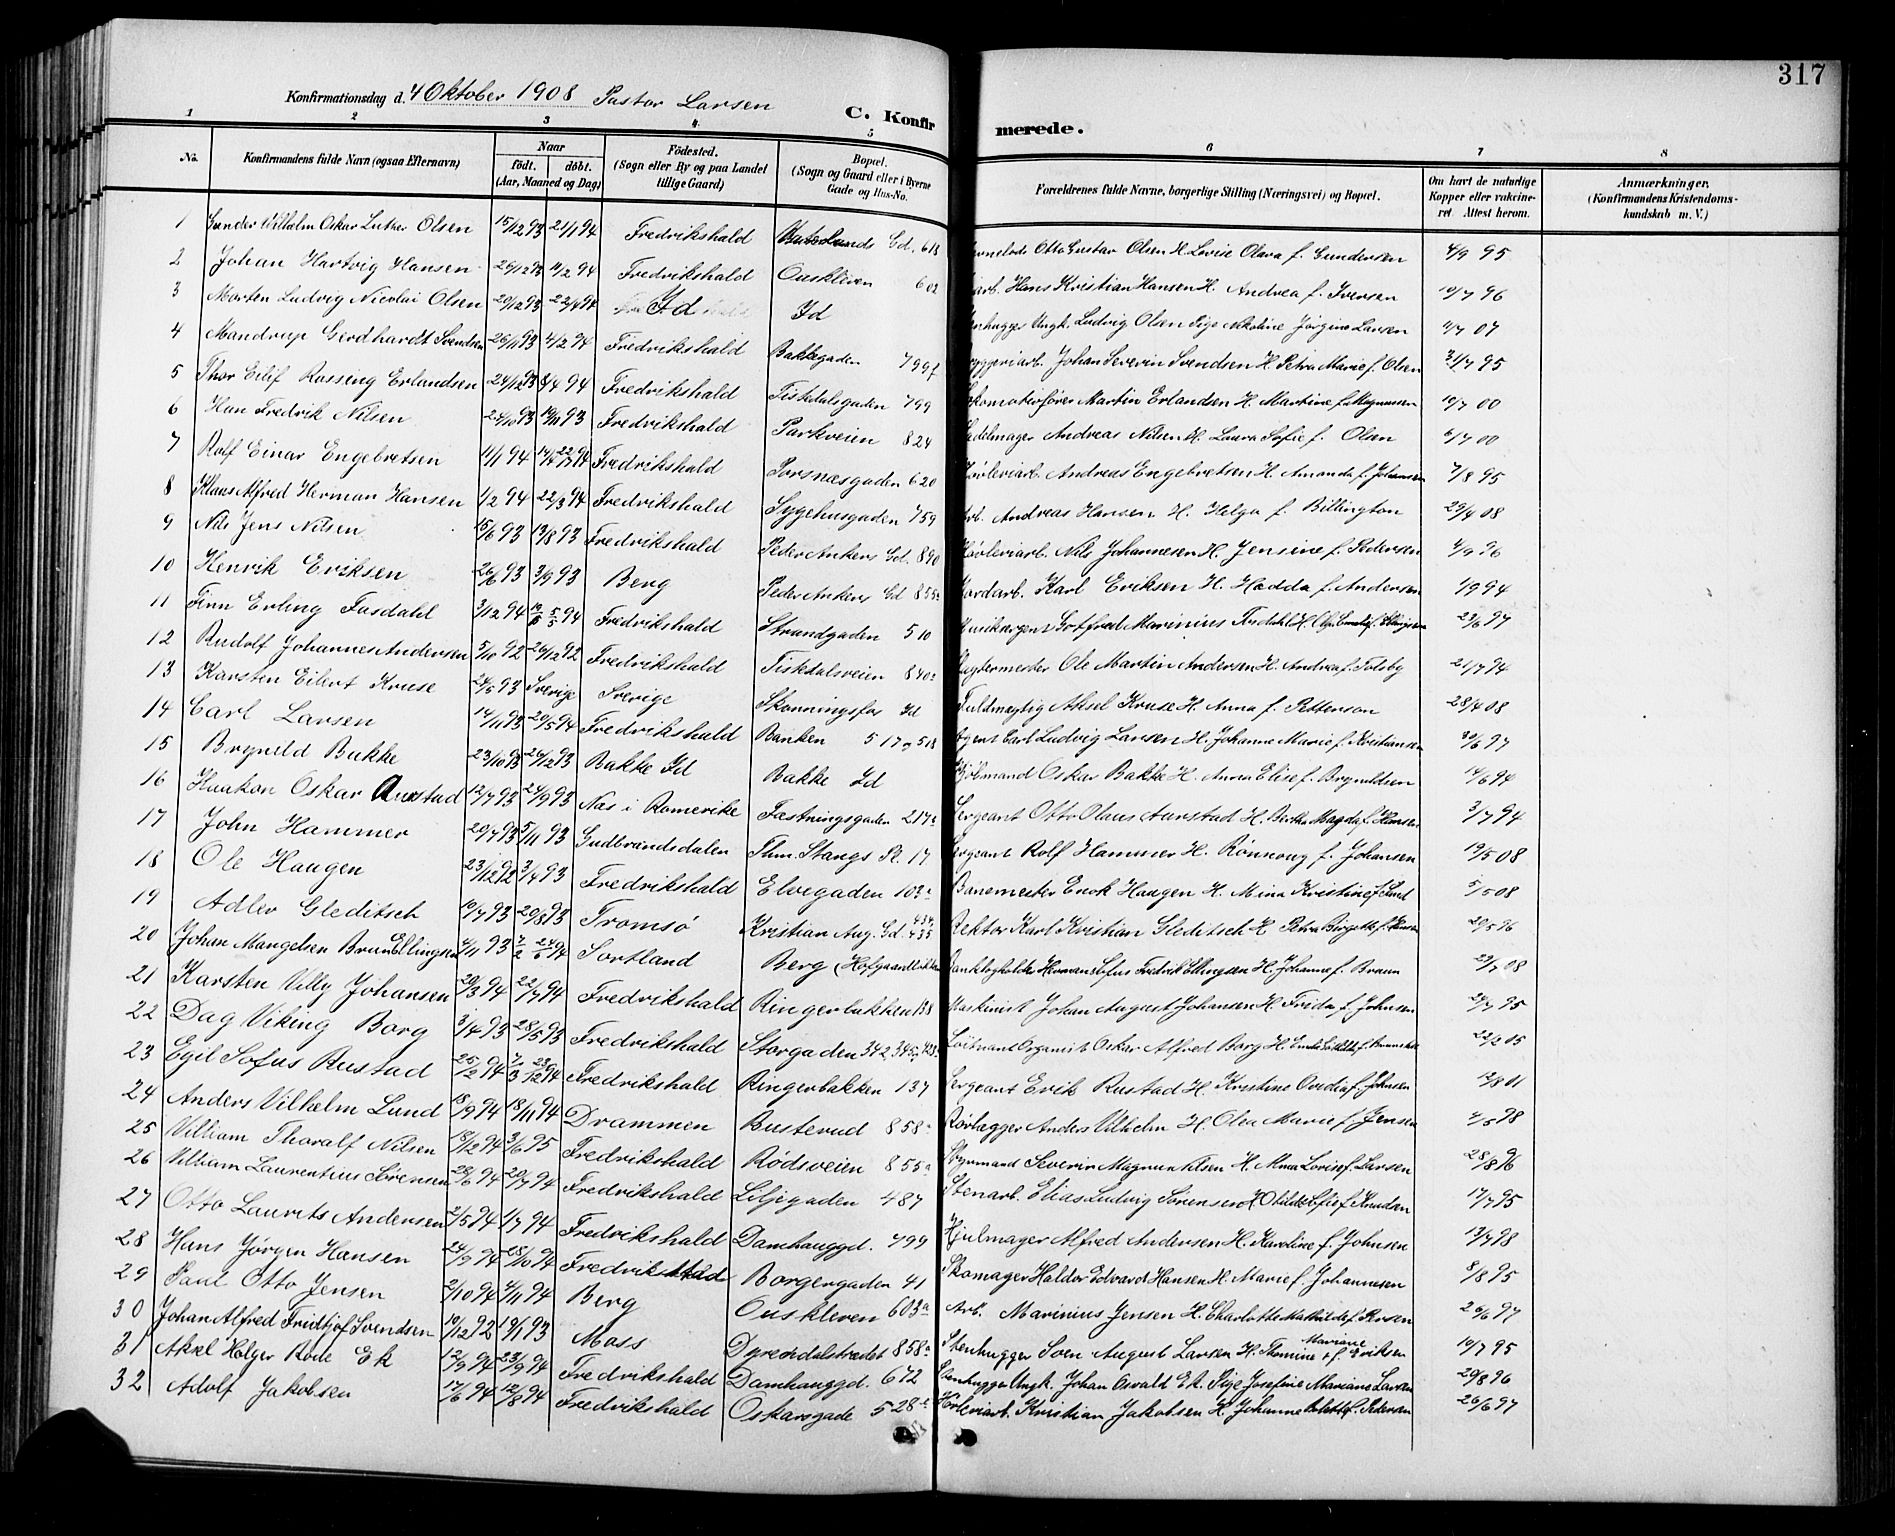 317
Konfirmationsdag d. 4 Oktober 1908 Pastor Larsen
C. Konfirmerede.
1 2 3 4 5 6 7 8
No. Konfirmandens fulde Navn (ogsaa Efternavn) Naar født. døbt. (Aar, Maaned og Dag) Fødested. (Sogn eller By og paa Landet tillige Gaard) Bopæl. (Sogn og Gaard eller i Byerne Gade og Hus-No. Forældrenes fulde Navne, borgerlige Stilling (Næringsvei) og Bopæl. Om havt de naturlige Kopper eller vakcineret. Attest herom. Anmærkninger. (Konfirmandens Kristendomskundskab m. V.)
1 Gunder Vilhelm Oskar Luther Olsen 15/12 93 21/1 94 Fredrikshald Gd. 618 Otto Gustav Olsen H. Lovise Olava f. Gundersen 4/9 95
2 Johan Hartvig Hansen 26/12 93 11/2 94 Fredrikshald Ouskleven 602 arb. Hans Kristian Hansen H. Andrea f. Iversen 10/7 96
3 Morten Ludvig Nicolai Olsen 20/12 93 22/4 94 Id Id Stenhugger Ungk. Ludvig Olsen Pige Nikoline Jørgine Larsen 4/7 07
4 Mandrup Gerdhardt Svendsen 26/11 93 4/2 94 Fredrikshald Bakkegaden 799f Bryggeriarb. Johan Severin Svendsen H. Petra Marie f. Olsen 31/7 95
5 Thor Eilif Rossing Erlandsen 24/12 93 8/4 94 Fredrikshald Tistedalsgaden 799 Lokomotivfører Martin Erlandsen H. Martine f. Magnussen 10/7 00
6 Han Fredrik Nilsen 24/10 93 19/11 93 Fredrikshald Parkveien 824 Sadelmager Andreas Nilsen H. Laura Sofie f. Olsen 6/7 00
7 Rolf Einar Engebretsen 11/1 94 Fredrikshald Porsnæsgaden 620 Høvleriarb. Andreas Engebretsen H. Amanda f. Johansen 7/8 95
8 Klaus Alfred Herman Hansen 1/2 94 22/3 94 Fredrikshald Sygehusgaden 759 Arb. Andreas Hansen H. Helga f. Billington 29/4 08
9 Nils Jens Nilsen 15/6 93 13/8 93 Fredrikshald Peder Ankers Gd. 890 Høvleriarb. Nils Johannesen H. Jensine f. Pedersen 4/9 96
10 Henrik Eriksen 26/6 93 3/9 93 Berg Peder Ankers Gd 855a Jordarb. Karl Eriksen H. Hedda f. Andersen 1/9 94
11 Finn Erling Fosdahl 3/12 94 Fredrikshald Strandgaden 510 Gotfred Marinius Fosdahl H. 23/6 97
12 Rudolf Johannes Andersen 5/10 92 26/12 92 Fredrikshald Tistedalsveien 840a Slagtermester Ole Martin Andersen H. Andrea f. 21/7 94
13 Karsten Eilert Kruse 24/5 93 Sverige Sverige Skonningsfos Id Fuldmægtig Aksel Kruse H. Anna f. Petterson 28/4 08
14 Carl Larsen 14/11 93 20/5 94 Fredrikshald Banken 517 og 518 Agent Carl Ludvig Larsen H. Johanne Marie f. Kristiansen 30/6 97
15 Brynild Bakke 23/10 93 26/12 93 Bakke Id Bakke Id Oskar Bakke H. Anna Elise f. Brynildsen 14/6 94
16 Haakon Oskar Aurstad 12/7 93 24/9 93 Nas i Romerike Fæstningsgaden 217a Sergeant Otto Olaus Aurstad H. Bertha Magda f. Hansen 3/7 94
17 John Hammer 20/7 93 5/11 93 Gudbrandsdalen Thm. Stangs Pl. 17 Sergeant Rolf Hammer H. Rønnoug f. Johansen 19/5 08
18 Ole Haugen 23/12 92 3/4 93 Fredrikshald Elvegaden 102a Banemester Enok Haugen H. Mina Kristine f. 5/5 08
19 Adler Gleditsch 19/7 93 20/8 93 Tromsø Kristian Aug. Gd. 434 435 Rektor Karl Kristian Gleditsch H. Petra Birgitte f. 29/5 96
20 Johan Mangelsen Brun Ellingsen 4/11 93 Sortland Berg (Hofgaardløkken Bankbogholder Herman Sofus Fredrik Ellingsen H. Johanne f. Bruun 23/7 08
21 Karsten Villy Johansen 20/3 94 22/7 94 Fredrikshald Ringerbakken 138 Maskinist Johan August Johansen H. Frida f. Johnsen 24/7 95
22 Dag Viking Borg 3/4 93 28/5 93 Fredrikshald Storgaden 342 345 Løitnant Organist Oskar Alfred Borg H. 22/2 05
23 Egil Sofus Rustad 25/2 94 Fredrikshald Ringerbakken 137 Sergeant Erik Rustad H. Kristine Ovidia f. Johnsen 12/8 01
24 Anders Vilhelm Lund 18/9 94 18/11 94 Drammen Busterud 858a Rørlægger Anders Vilhelm H. Olea Marie f. Jensen 4/5 98
25 Villiam Thoralf Nilsen 18/12 94 3/6 95 Fredrikshald Rødsveien 855a Styrmand Severin Magnus Nilsen H. Alma Lovise f. Larsen 28/8 96
26 Villiam Laurentius Sørensen 28/6 94 29/7 94 Fredrikshald Liljegaden 487 Stenarb. Elias Ludvig Sørensen H. Otilde Sofie f. Knudsen 17/7 95
27 Otto Laurits Andersen 2/5 94 1/7 94 Fredrikshald Damhauggd. 799 Hjulmager Alfred Andersen H. Karoline f. Johnsen 13/7 98
28 Hans Jørgen Hansen 24/9 94 28/10 94 Fredrikstad Borgergaden 41 Skomager Haldor Edvard Hansen H. Marie f. Johannesen 8/8 95
29 Paul Otto Jensen 2/10 94 4/11 94 Berg Ouskleven 603a Arb. Marinius Jensen H. Charlotte Mathilde f. Rosen 26/6 97
30 Johan Alfred Fridtjof Svendsen 10/12 92 19/1 93 Moss Dyrendalstrædet 858a Stenhugger Sven August Larsen H. Thomine Mariane f. Eriksen 10/7 95
31 Aksel Holger Rode Ek 12/9 94 23/9 94 Fredrikshald Damhauggd. 672 Stenhugger Ungk. Johan Osvald Ek Pige Josefine Mariane Larsen 29/8 96
32 Adolf Jakobsen 17/6 94 12/8 94 Fredrikshald Oskarsgade 528 Høvleriarb. Kristian Jakobsen H. Johanne f. Pedersen 26/6 97